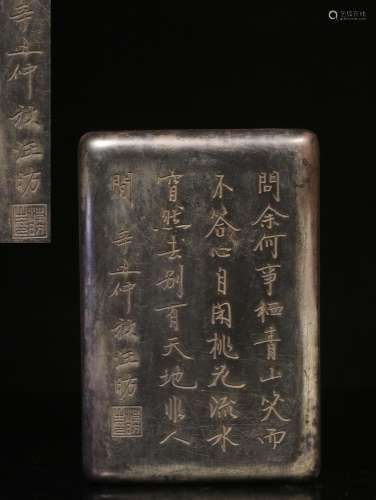 問余何事栖青山笑而
不答心自閑桃花流水
窅然去別有天地非人
間 辛丑仲秋江昉
辛丑仲秋江昉